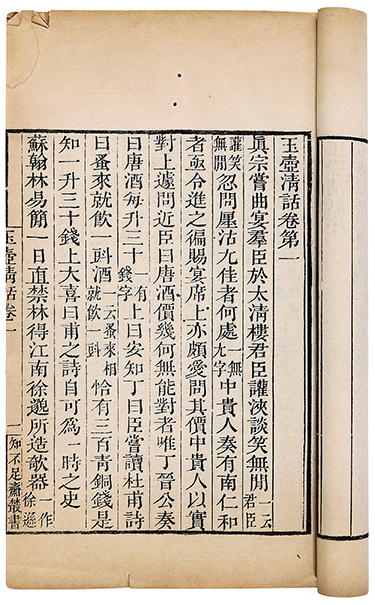 玉壺清話卷第一
眞宗嘗曲宴羣臣於太清樓君臣讙浹談笑無閒一云君臣
讙笑無閒忽問厘沽尤佳者何處一無尤字中貴人奏有南仁和
者亟令進之徧賜宴席上亦頗愛問其價中貴人以實
對上遽問近臣曰唐酒價幾何無能對者唯丁晉公奏
曰唐酒每升三十一有錢字上曰安知丁曰臣嘗讀杜甫詩
曰蚤來就飲一㪷酒一云蚤來相就飲一㪷恰有三百青銅錢是
知一升三十錢上大喜曰甫之詩自可為一時之史
蘇翰林易簡一日直禁林得江南徐邈所造欹器一作徐遜
玉壺清話卷一
知不足齋叢書